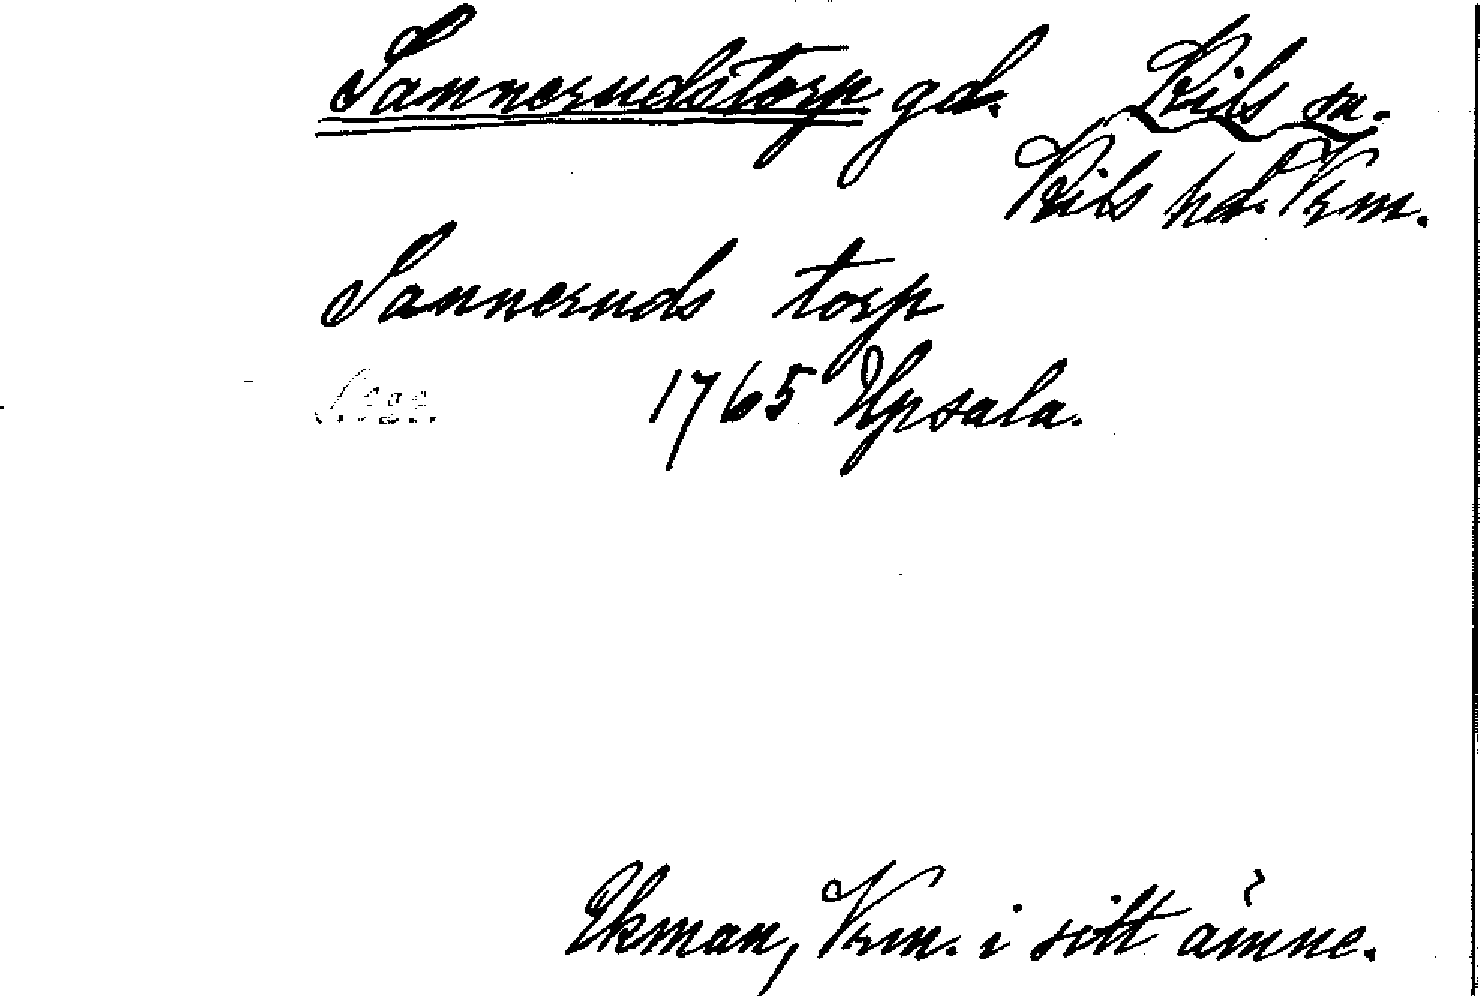 Sannerudstorp gd. Kils sn.
Kils hd. Vrm.
Sanneruds torp
1765 Upsala.
Ekman, Vrm. i sitt ämne.